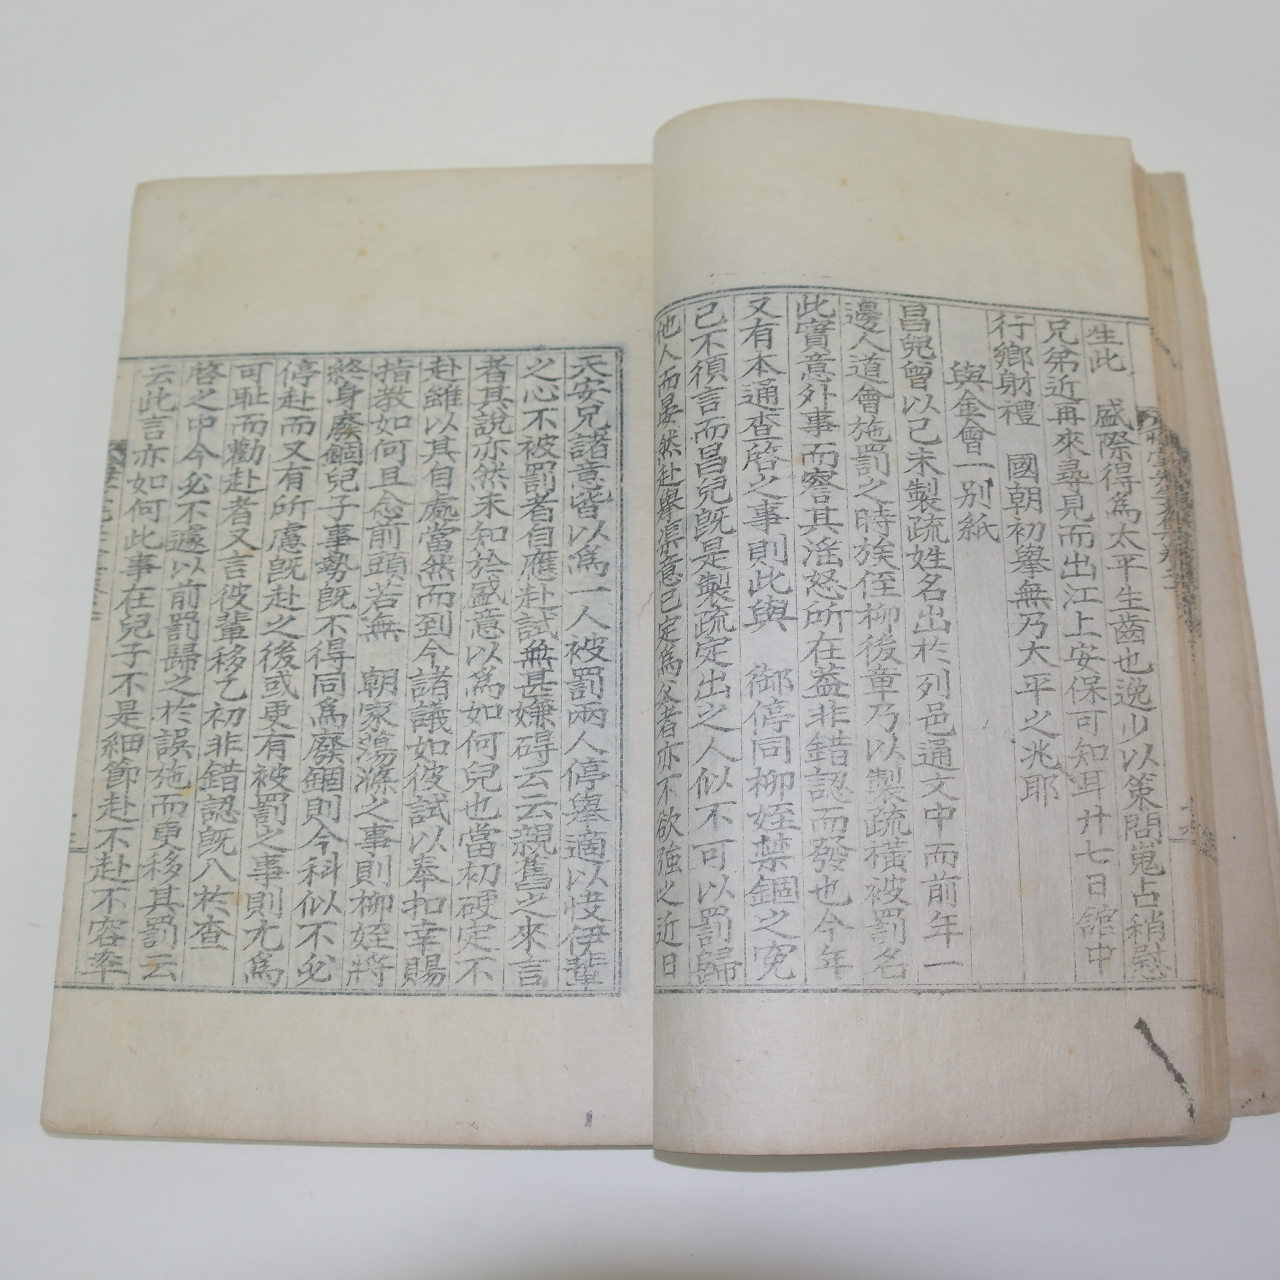 生此 盛際得爲太平生齒也逸少以策問嵬占稍慰
兄弟近再來尋見而出江上安保可知耳廾七日舘中
行鄉財禮 國朝初舉無乃大平之兆耶
與金會一別紙
昌兒曾以己未製疏姓名出於列邑通文中而前年一
邊人道會施罰之時族侄柳後章乃以製疏橫被罰名
此實意外事而察其淫怒所在葢非錯認而發也今年
又有本通查啓之事則此與 御停同柳姪禁錮之寃
己不須言而昌兒旣是製疏定出之人似不可以罰歸
他人而晏然赴擧渠意已定爲父者亦不欲強之近日
天安兄諸意皆以爲一人被罰兩人停擧適以快伊輩
之心不被罰者自應赴試無甚嫌碍云云親舊之來言
者其說亦然未知於盛意以爲如何兒也當初硬定不
赴雖以其自處當然而到今諸議如彼試以奉扣幸賜
指敎如何且念前頭若無 朝家蕩滌之事則柳姪將
終身廢錮兒子事勢旣不得同爲廢錮則今科似不必
停赴而又有所慮旣赴之後或更有被罰之事則尤爲
可恥而勸赴者又言彼輩移乙初非錯認旣入於查
啓之中今必不遽以前罰歸之於誤施而更移其罰云
云此言亦如何此事在兒子不是細節赴不赴不容率